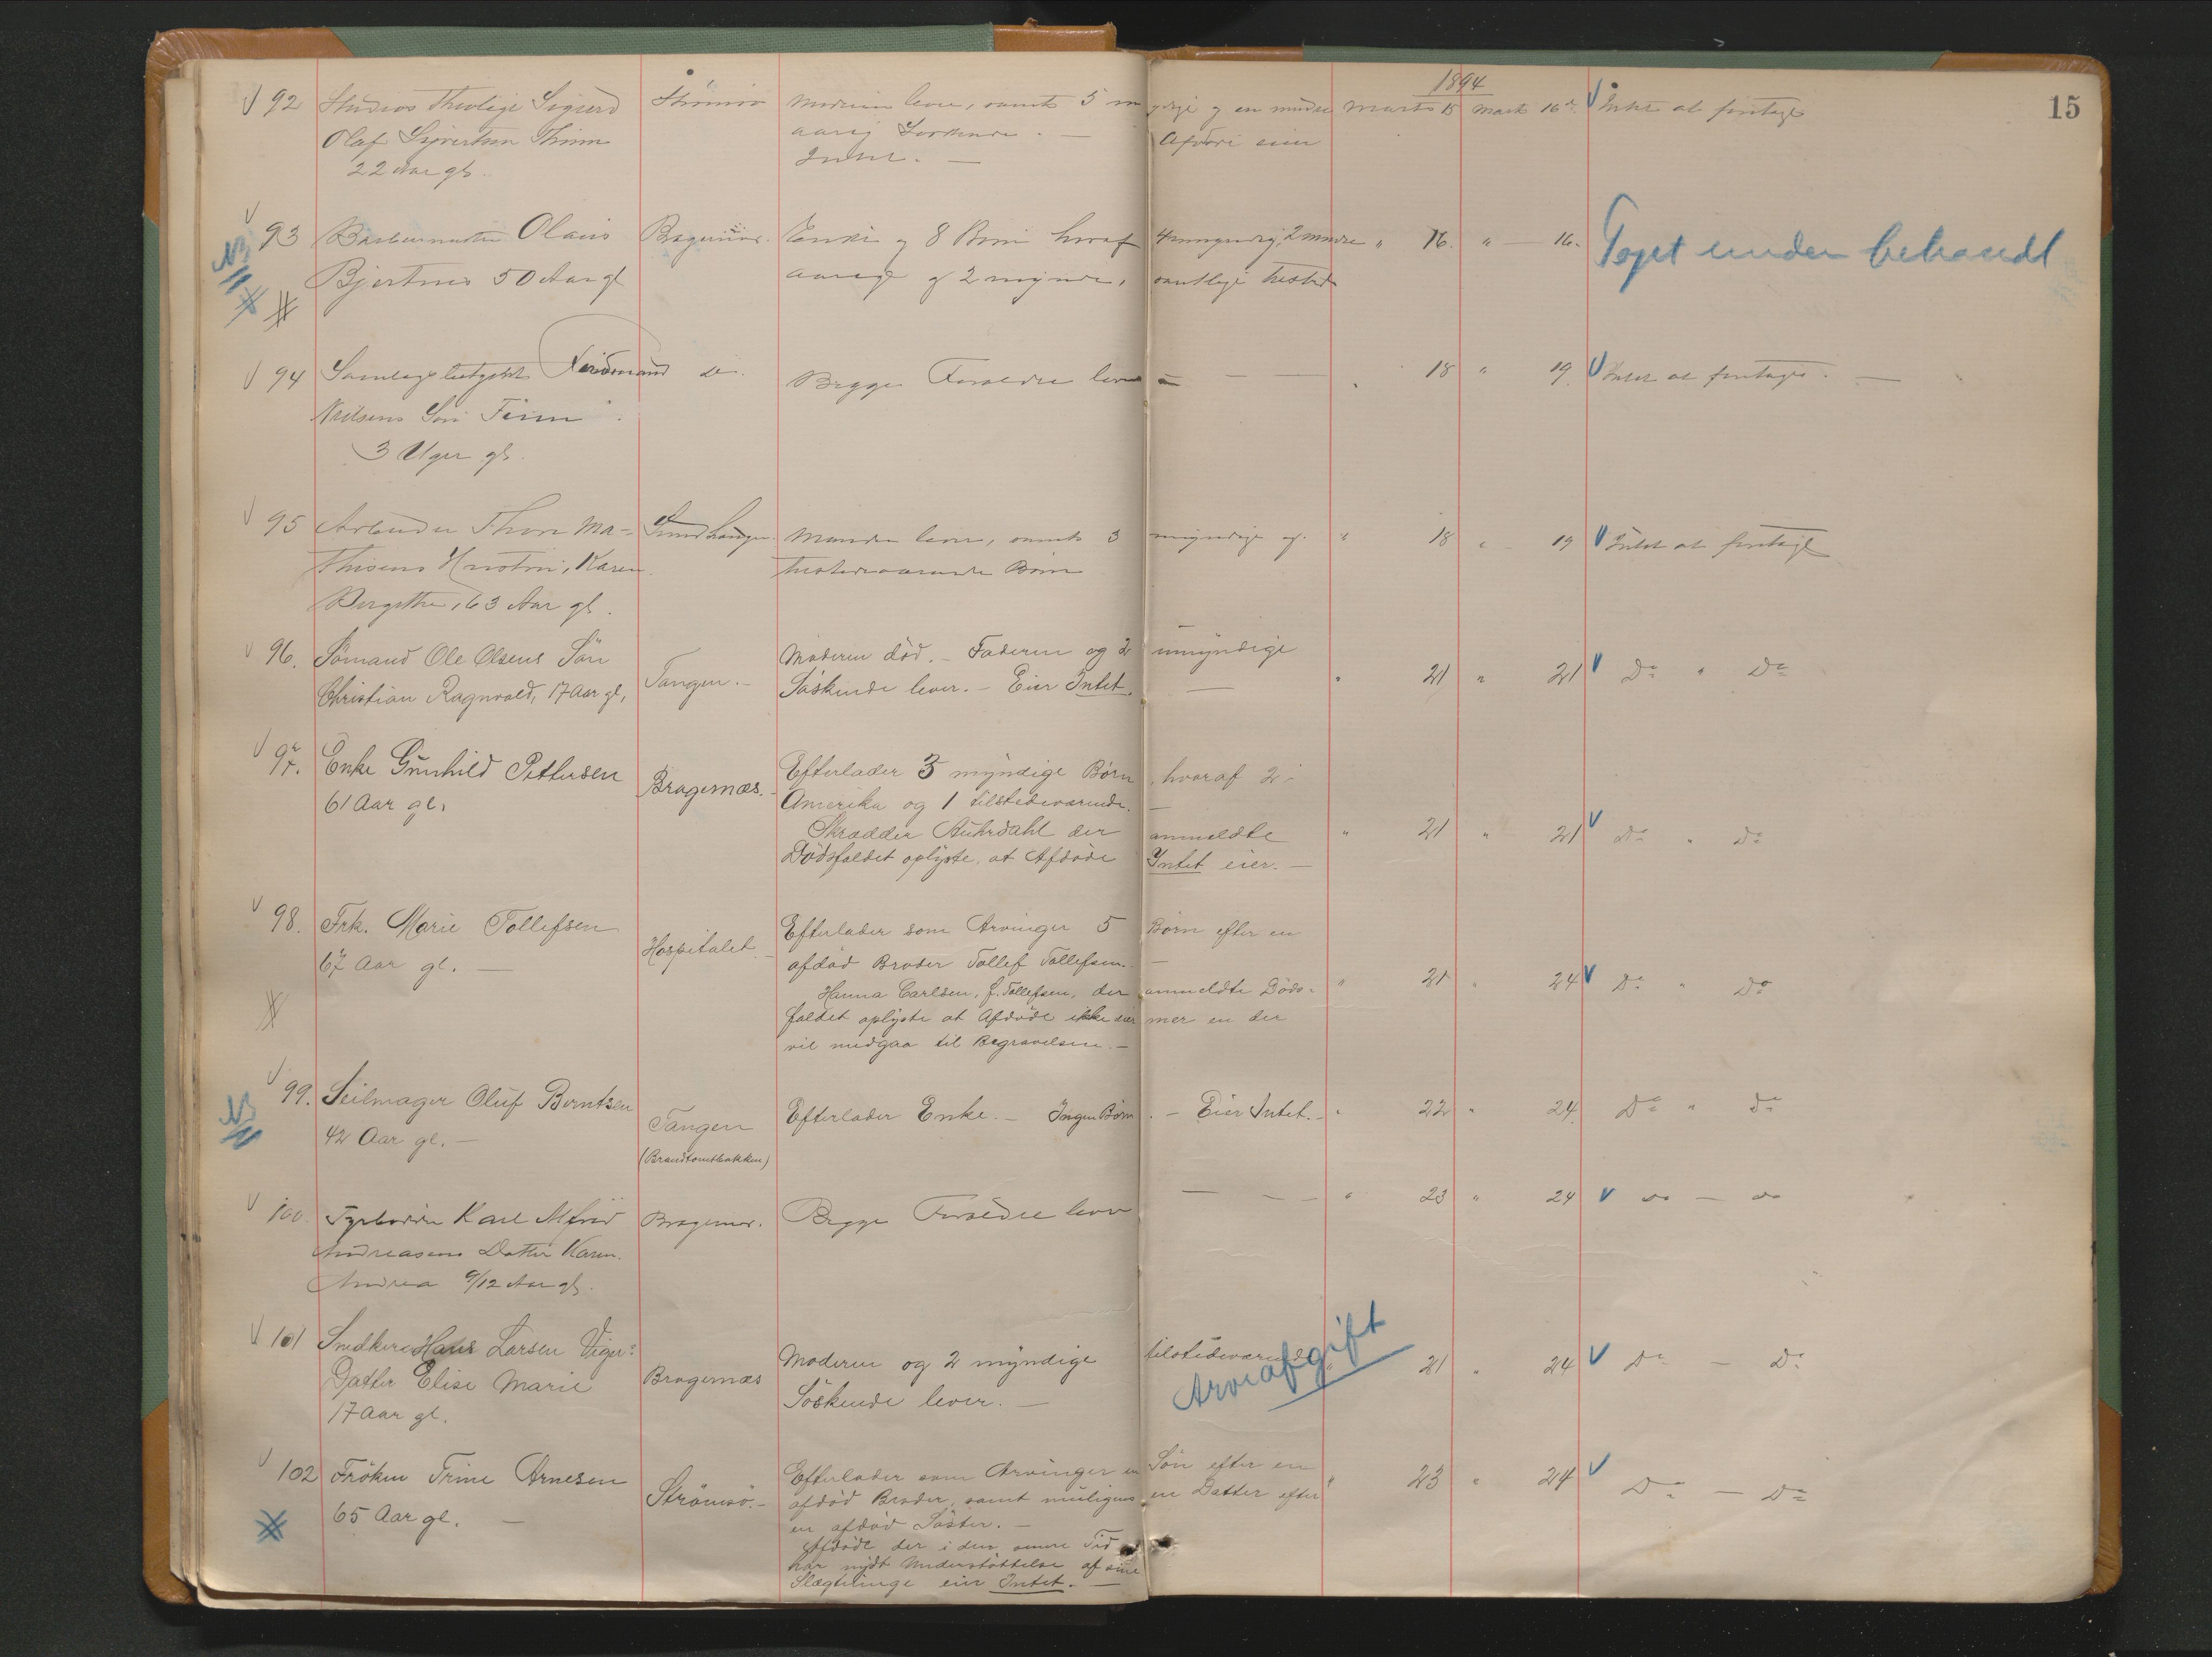 1894
15
92 Studios Theologi Sigurd Strömsö Moderen lever, samt 5 myndige og en mindre Marts 15 Marts 16. Intet at foretage
Olaf Sivertsen aarig Søskende. — Afdøde eier
22 Aar gl. Intet. —
93 Olaus Bragernæs. Enke og 8 Børn hvoraf 4 myndige, 2 mindre " 16. " — 16. Toget under behandl
NB Bjertnes 50 Aar gl aarige og 2 myndre, samtlige tilstede
94 Ferdinand do. Begge Forældre lever — — — " 18 " 19. Intet at foretage. —
Neilsens Søn Finn
3 Uger gl.
95 Arbeider Thore Ma- Manden lever, samt 3 myndige og " 18 " 19 Intet at foretage
thisens Hustru, Karen tilstedeværende Børn
Birgitte, 63 Aar gl.
96. Sömand Ole Olsens Sön Tangen. — Moderen död. — Faderen og 2 umyndige " 21 " 21 Do " Do
Christian Ragnvald, 17 Aar gl, Söskende lever. — Eier Intet. —
97. Enke Gunhild Pettersen Bragernæs. — Efterlader 3 myndige Børn, hvoraf 2 i
61 Aar gl. Amerika og 1 tilstedeværende. —
Skrædder Auhrdahl der anmeldte " 21 " 21 Do " Do
Dödsfaldet oplyste, at Afdöde Intet eier. —
98. Frk. Marie Tollefsen Hospitalet. — Efterlader som Arvinger 5 Børn efter en
67 Aar gl. — afdöd Broder Tollef Tollefsen. —
Hanna Carlsen, f. Tollefsen, der anmeldte Döds- " 21 " 24 Do " Do
faldet oplyste at Afdöde ikke eier mer en der
vil medgaa til Begravelsen. —
99. Seilmager Oluf Berntsen Tangen Efterlader Enke. — Ingen Børn. — Eier Intet. — " 22 " 24. Do " Do
NB 42 Aar gl. — (Brandtomtbakken)
100. Fyrbøder Karl Alfred Bragernæs. Begge Forældre lever — — " 23 " 24 do — do
Andreasens Datter Karen
Andrea 9/12 Aar gl.
101 Snedker Hans Larsen Vigers Bragernæs Moderen og 2 myndige tilstedeværende " 21 " 24 Do — Do
Datter Elise Marie Söskende lever. — Arveafgift
17 Aar gl.
102 Fröken Trine Arnesen Strömsö. — Efterlader som Arvinger en Sön efter en " 23 " 24 Do — Do
65 Aar gl. — afdöd Broder, samt muligens en Datter efter
en afdöd Söster. —
Afdöde der i den senere Tid
har nydt Understöttelse af sine
Slægtninge eier Intet. —